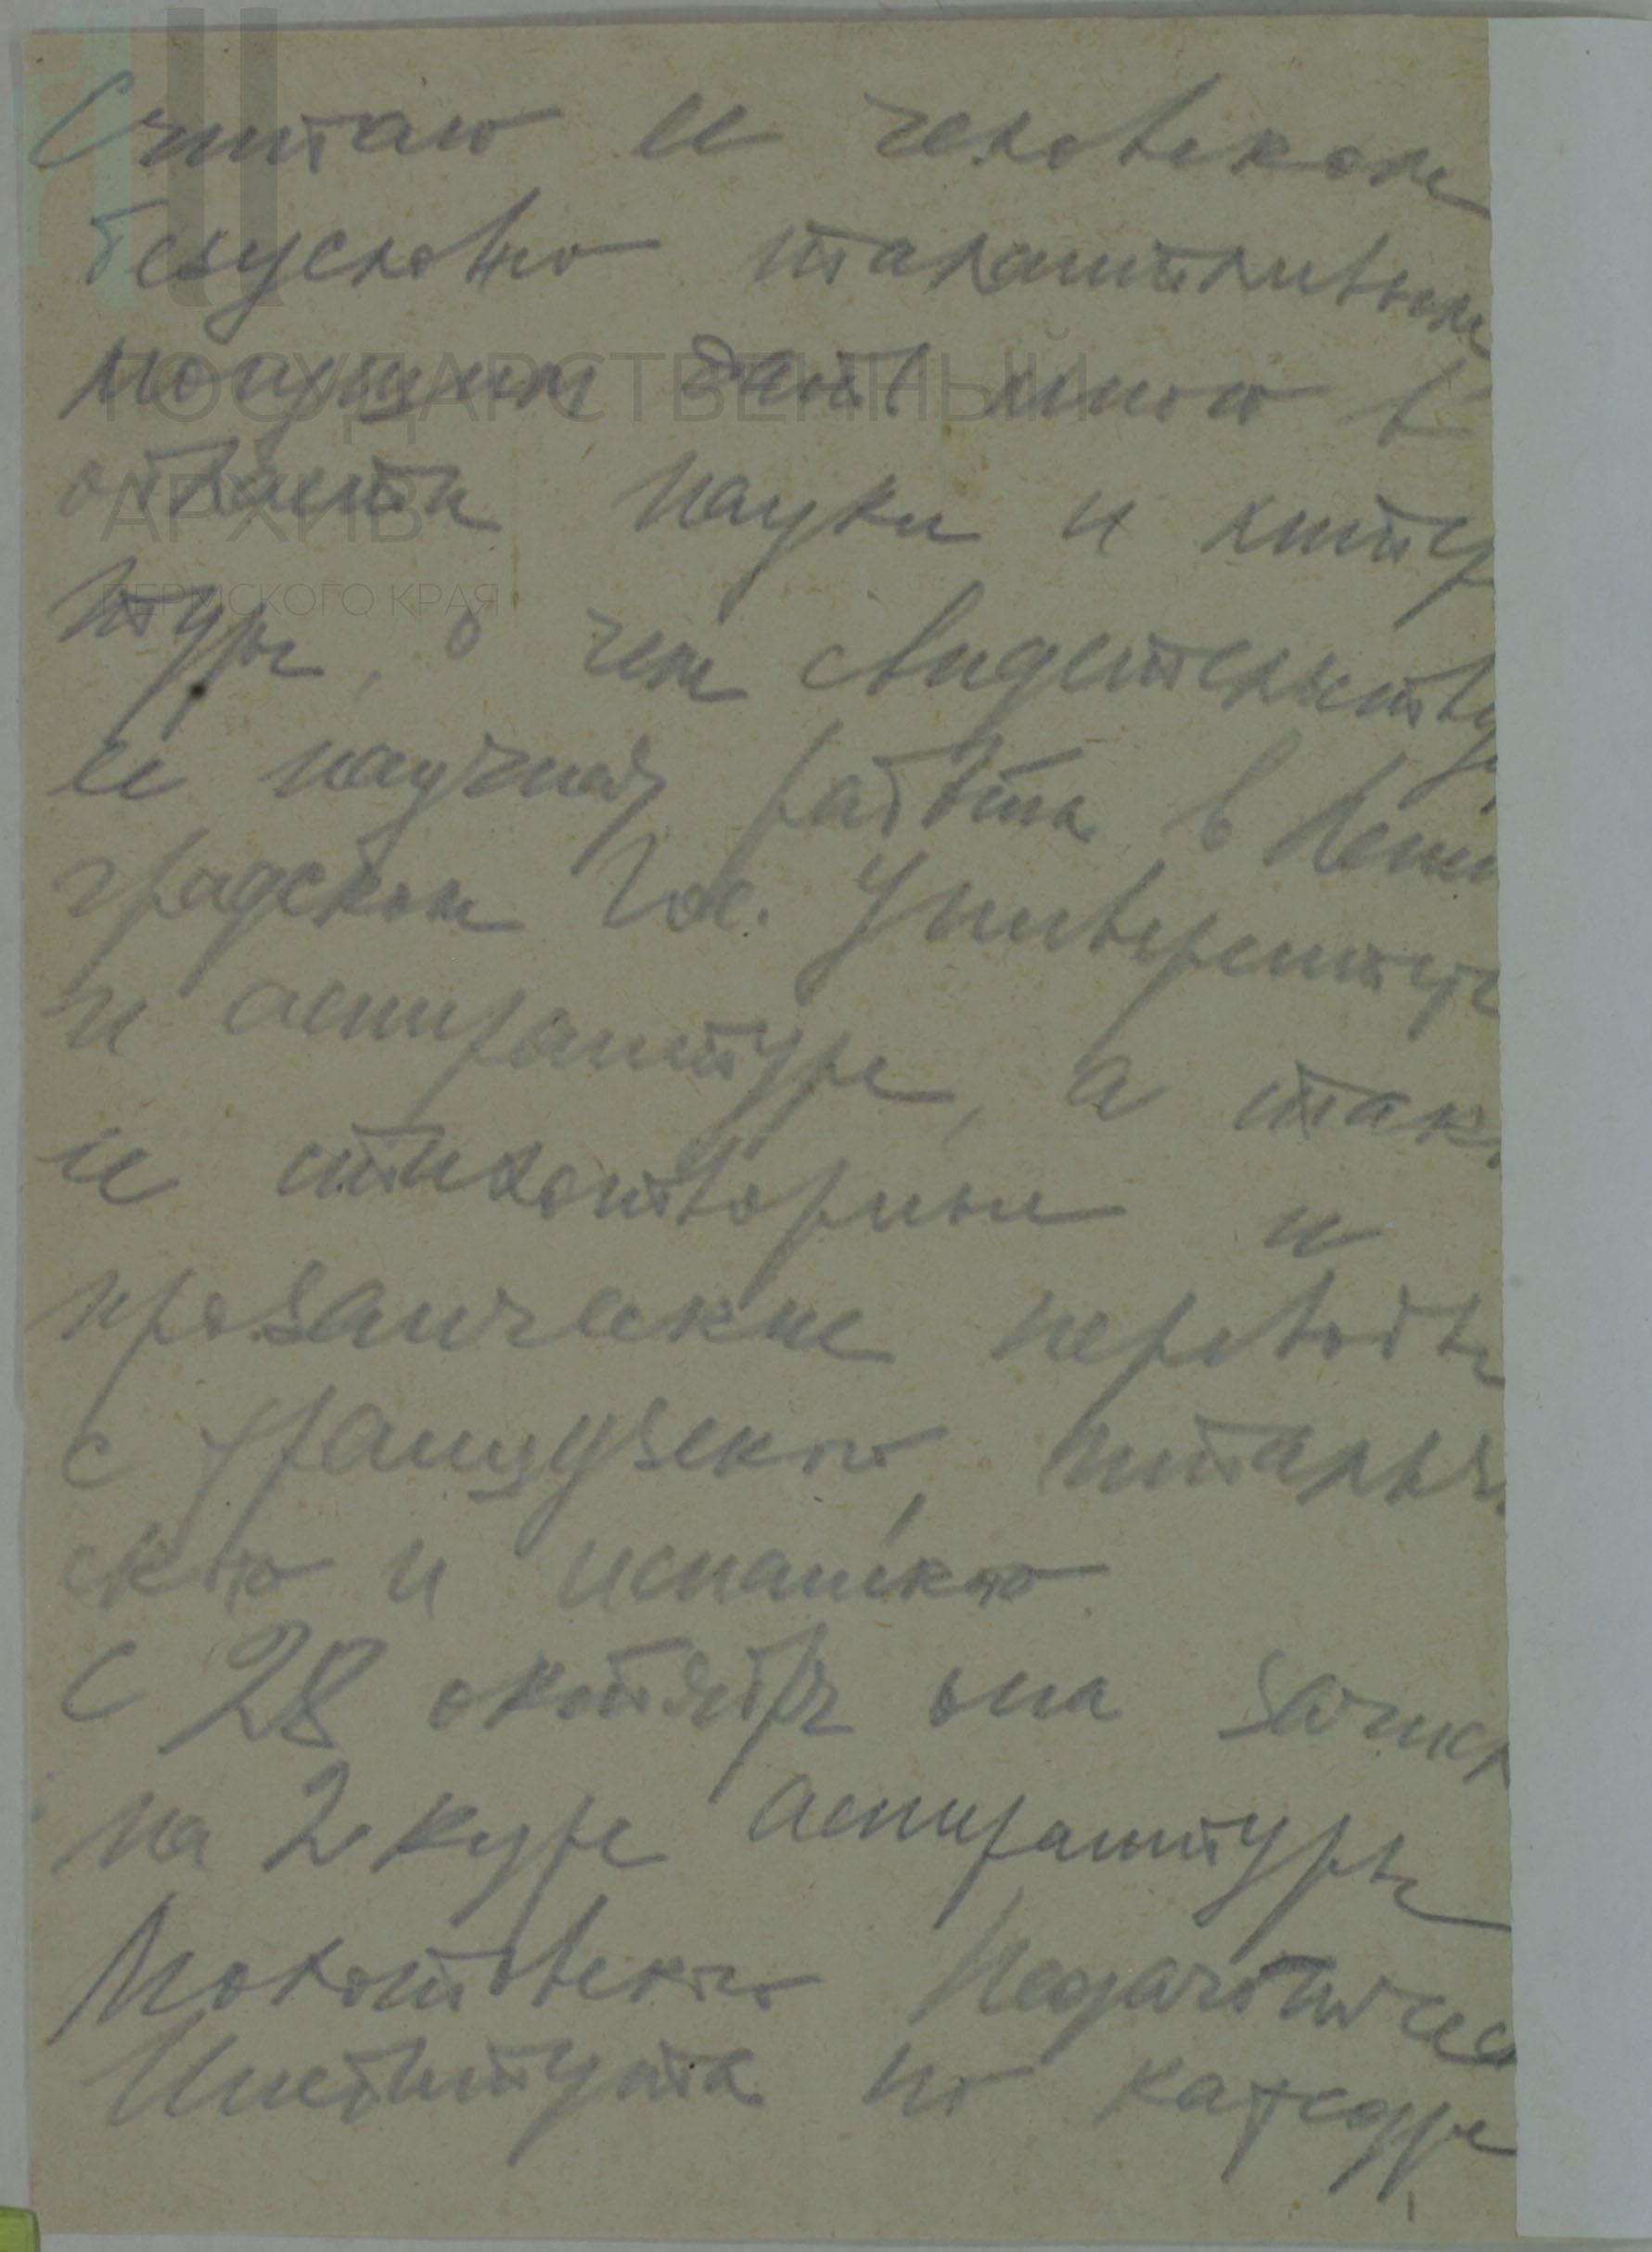 Считаю ее человеком
безусловно талантливым
могущим дать много в
области науки и литер
туры, о чем свидетельству
ее научная работа в Ленин
градском Гос. Университете
и аспирантуре, а так
ее стихотворные и
прозаические переводы
с французского, итальян
ского и испанского
С 28 октября она зачисл
на 2 курс аспирантуры
Молотовского Педагогичес
Института по кафедре
ГОСУДАРСТВЕННЫЙ
АРХИВ
ПЕРМСКОГО КРАЯ